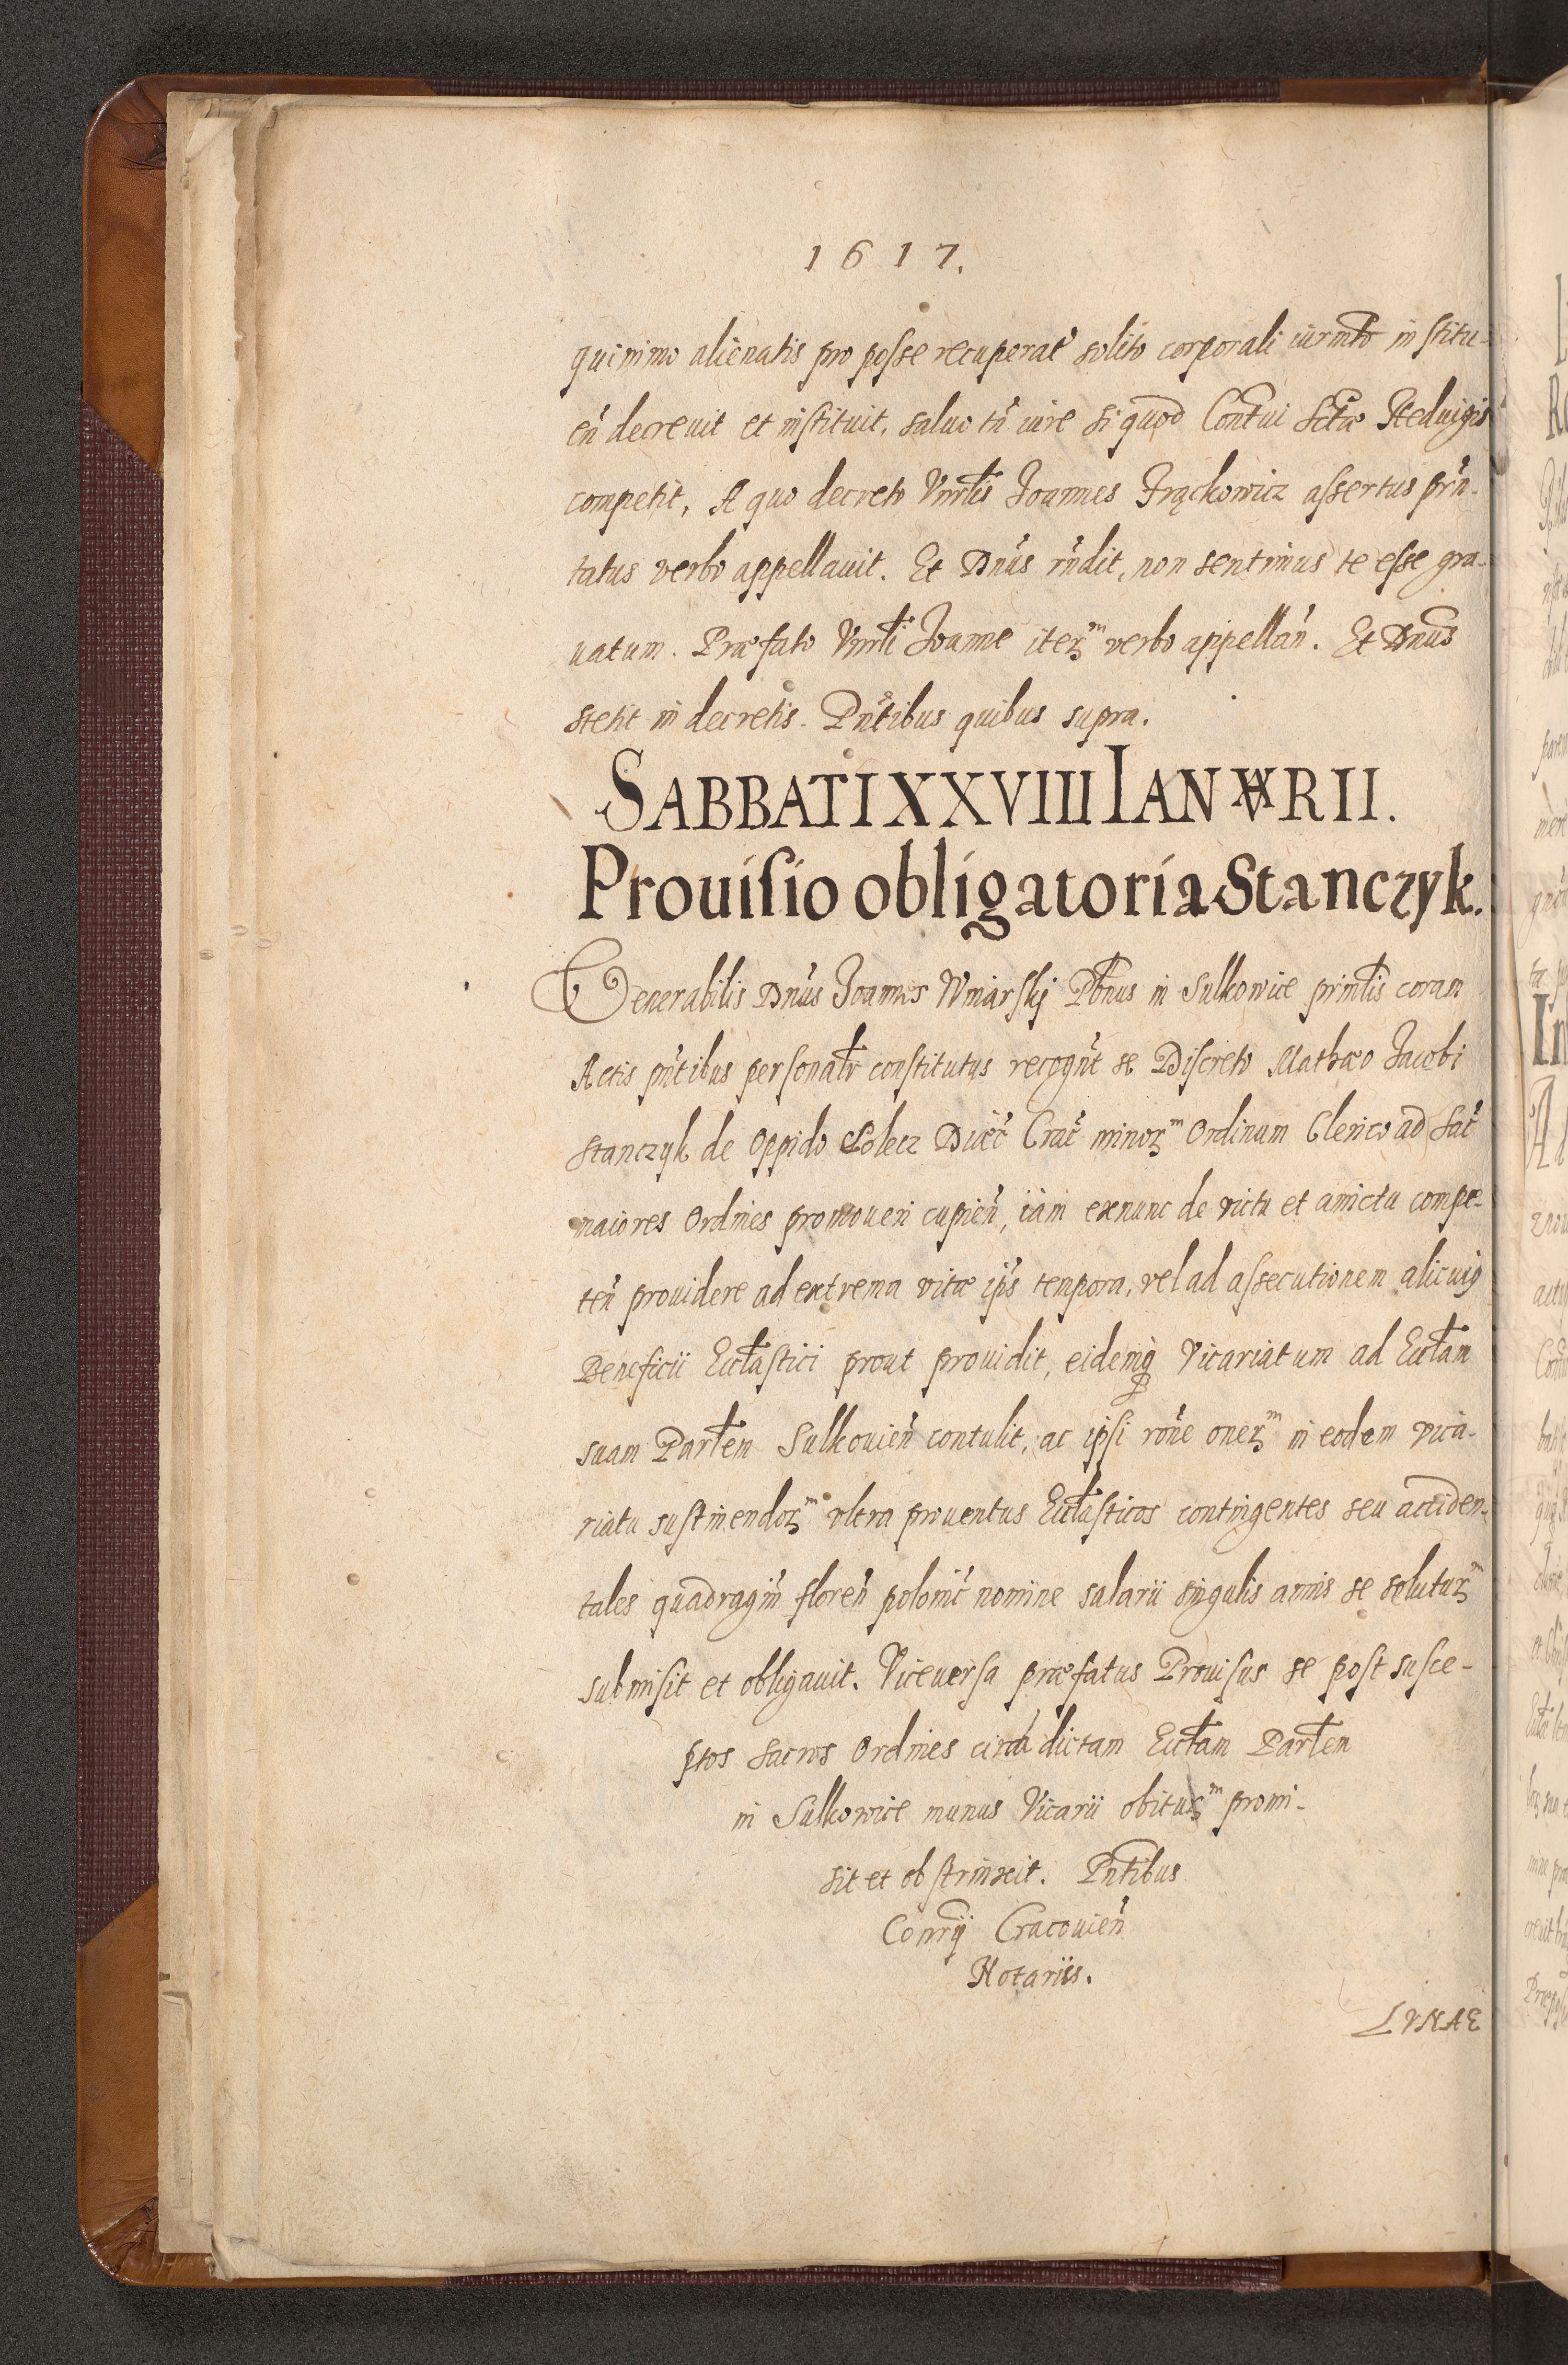 1617.
quinimo alienatis pro posse recuperat' solito corporali iurm̃to institu-
eñ decreuit et instituit, saluo tñ iure si quod Contui Sctæ Heduigis
competit, A quo decreto Vnrlis Joannes Frąckowicz assertus prñ-
tatus verbo appellauit. Et Dnus rñdit, non sentimus te esse gra-
uatum. Præfato Vnrli Joanne iterꝝm verbo appellañ. Et Dnus
stetit in decretis. Pñtibus quibus supra.
SABBATI XXVIII IANVARII.
Prouisio obligatoria Stanczyk.
Venerabilis Dnus Joannes Wmarskj Plbnus in Sulkowice prinlis coram
Actis pñtibus personalr constitutus recognt se Discreto Mathæo Jacobi
Stanczyk de Oppido Solecz Diæc' Crac' minorꝝm Ordinum Clerico ad Sac'
maiores Ordines promoueri cupień, iam exnunc de victu et amictu compe-
teñ prouidere ad extrema vitæ ips tempora, vel ad assecutionem alicuiꝯ
Beneficii Ecclastici prout prouidit, eidemq̃ Vicariatum ad Ecclam
suam Parlem Sulkouień contulit, ac ipsi rone onerꝝm in eodem vica-
riatu sustinendorꝝm vltra prouentus Ecclasticos contingentes seu acciden-
tales quadragiñ floreñ polonic' nomine salarii singulis annis se soluturꝝm
submisit et obligauit. Viceuersa præfatus Prouisus se post susce-
ptos Sacros Ordines circa dictam Ecclam Parlem
in Sulkowice munus Vicarii obiturꝝm promi-
sit et obstrinxit. Pñtibus
Conrÿ Cracouień
Notariis.
LVNAE